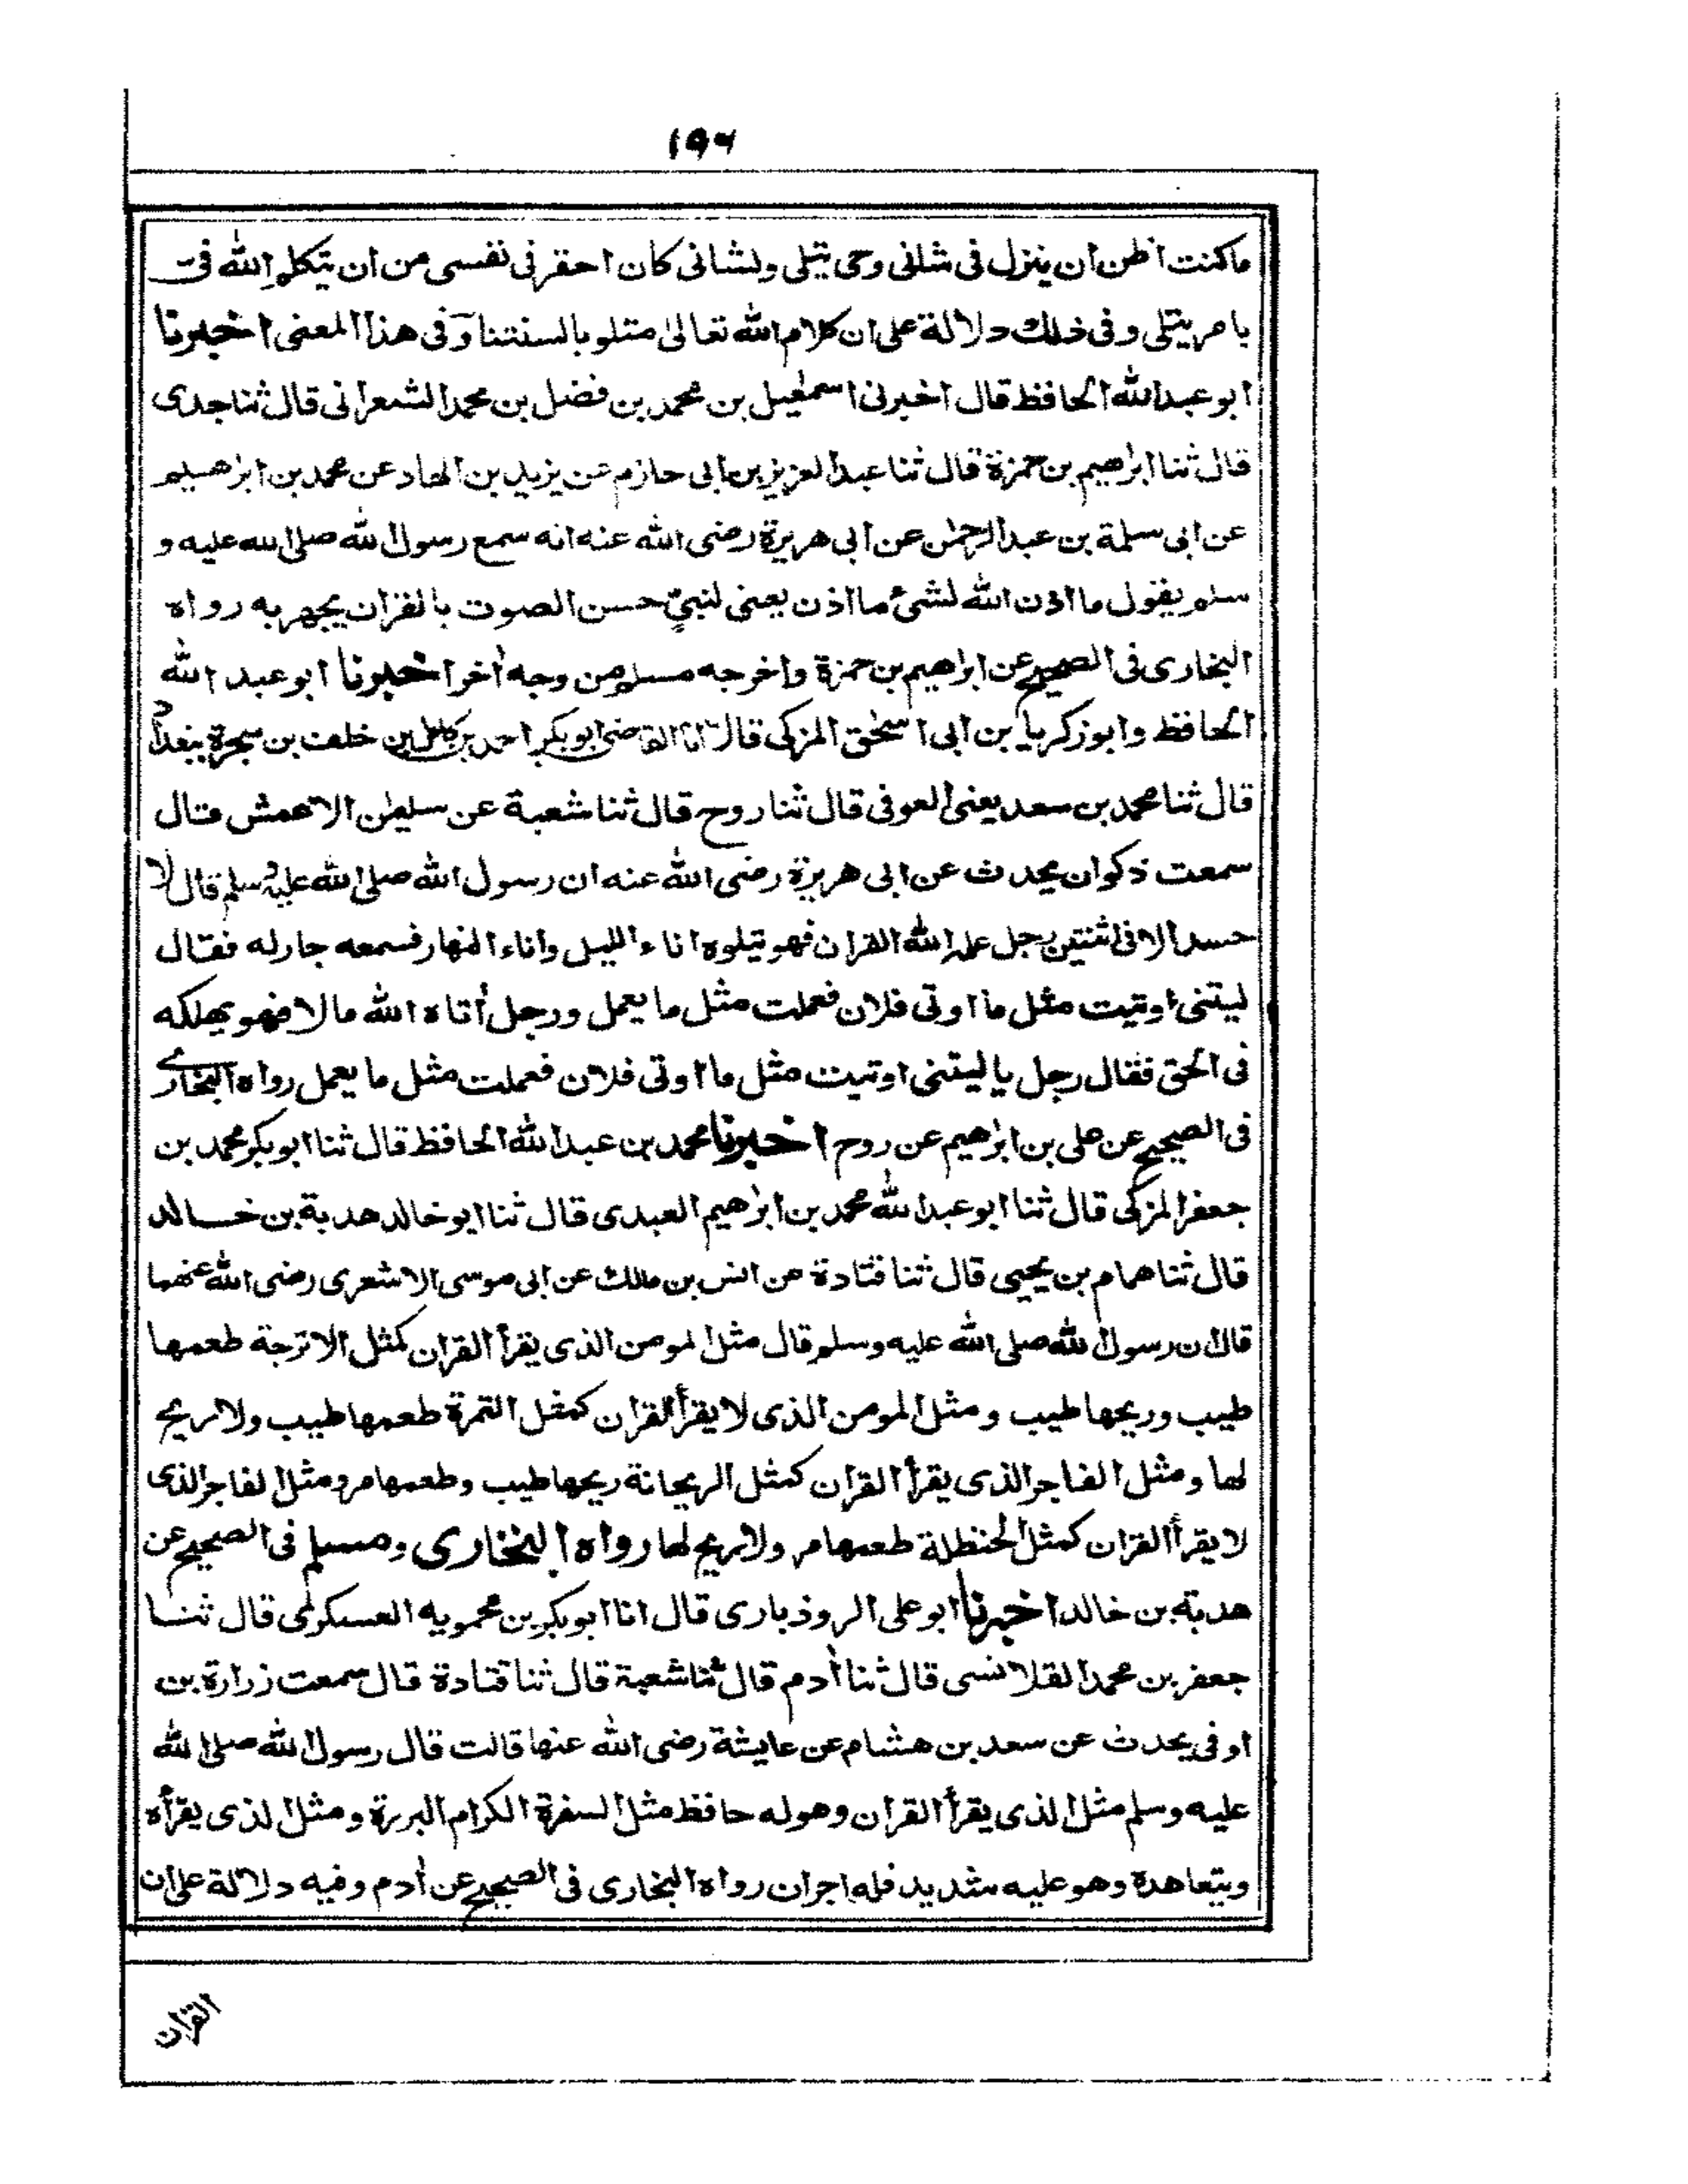 ١٩٦
ماكنت اظن ان ينزل فى شانى وحى يتلى ولشانى كان احقر فى نفسى من ان يتكلم الله فى
بامر يتلى وفى ذلك دلالة على ان كلام الله تعالى متلو بالسنتنا وفى هذا المعنى اخبرنا
ابو عبد الله الحافظ قال اخبرنى اسمعيل بن محمد بن فضل بن محمد الشعرانى قال ثنا جدى
قال ثنا ابرهيم بن حمزة قال ثنا عبد العزيز بن ابى حازم عن يزيد بن الهاد عن محمد بن ابرهيم
عن ابى سلمة بن عبد الرحمن عن ابى هريرة رضى الله عنه انه سمع رسول الله صلى الله عليه و
سلم يقول ما اذن الله لشئ ما اذن يعنى لنبى حسن الصوت بالقران يجهر به رواه
البخارى فى الصحيح عن ابراهيم بن حمزة واخرجه مسلم من وجه أخر اخبرنا ابو عبد الله
الحافظ وابو زكريا بن ابى اسحق المزكى قال انا القاضى ابو بكر احمد بن كامل بن خلف بن سجرة ببغداد
قال ثنا محمد بن سعد يعنى العوفى قال ثنا روح قال ثنا شعبة عن سليمن الاعمش قال
سمعت ذكوان يحدث عن ابى هريرة رضى الله عنه ان رسول الله صلى الله عليه وسلم قال لا
حسد الا فى اثنتين رجل علمه الله القران فهو يتلوه اناء الليل واناء النهار فسمعه جار له فقال
ليتنى اوتيت مثل ما اوتى فلان فعملت مثل ما يعمل ورجل أتاه الله مالا فهو يهلكه
فى الحق فقال رجل ياليتنى اوتيت مثل ما اوتى فلان فعملت مثل ما يعمل رواه البخارى
فى الصحيح عن على بن ابرهيم عن روح اخبرنا محمد بن عبد الله الحافظ قال ثنا ابو بكر محمد بن
جعفر المزكى قال ثنا ابو عبد الله محمد بن ابرهيم العبدى قال ثنا ابو خالد هدبة بن خالد
قال ثنا همام بن يحيى قال ثنا قتادة عن انس بن مالك عن ابى موسى الاشعرى رضى الله عنهما
قال ان رسول الله صلى الله عليه وسلم قال مثل المومن الذى يقرأ القران كمثل الاترجة طعمها
طيب وريحها طيب ومثل المومن الذى لا يقرأ القران كمثل التمرة طعمها طيب ولا ريح
لها ومثل الفاجر الذى يقرأ القران كمثل الريحانة ريحها طيب وطعمها مر ومثل الفاجر الذى
لا يقرأ القران كمثل الحنظلة طعمها مر ولا ريح لها رواه البخارى ومسلم فى الصحيح عن
هدبة بن خالد اخبرنا ابو على الروذبارى قال انا ابو بكر بن محمويه العسكرى قال ثنا
جعفر بن محمد القلانسى قال ثنا أدم قال ثنا شعبة قال ثنا قتادة قال سمعت زرارة بن
اوفى يحدث عن سعد بن هشام عن عايشة رضى الله عنها قالت قال رسول الله صلى الله
عليه وسلم مثل الذى يقرأ القران وهو له حافظ مثل السفرة الكرام البررة ومثل الذى يقرأه
ويتعاهده وهو عليه شديد فله اجران رواه البخارى فى الصحيح عن أدم وفيه دلالة على ان
القران